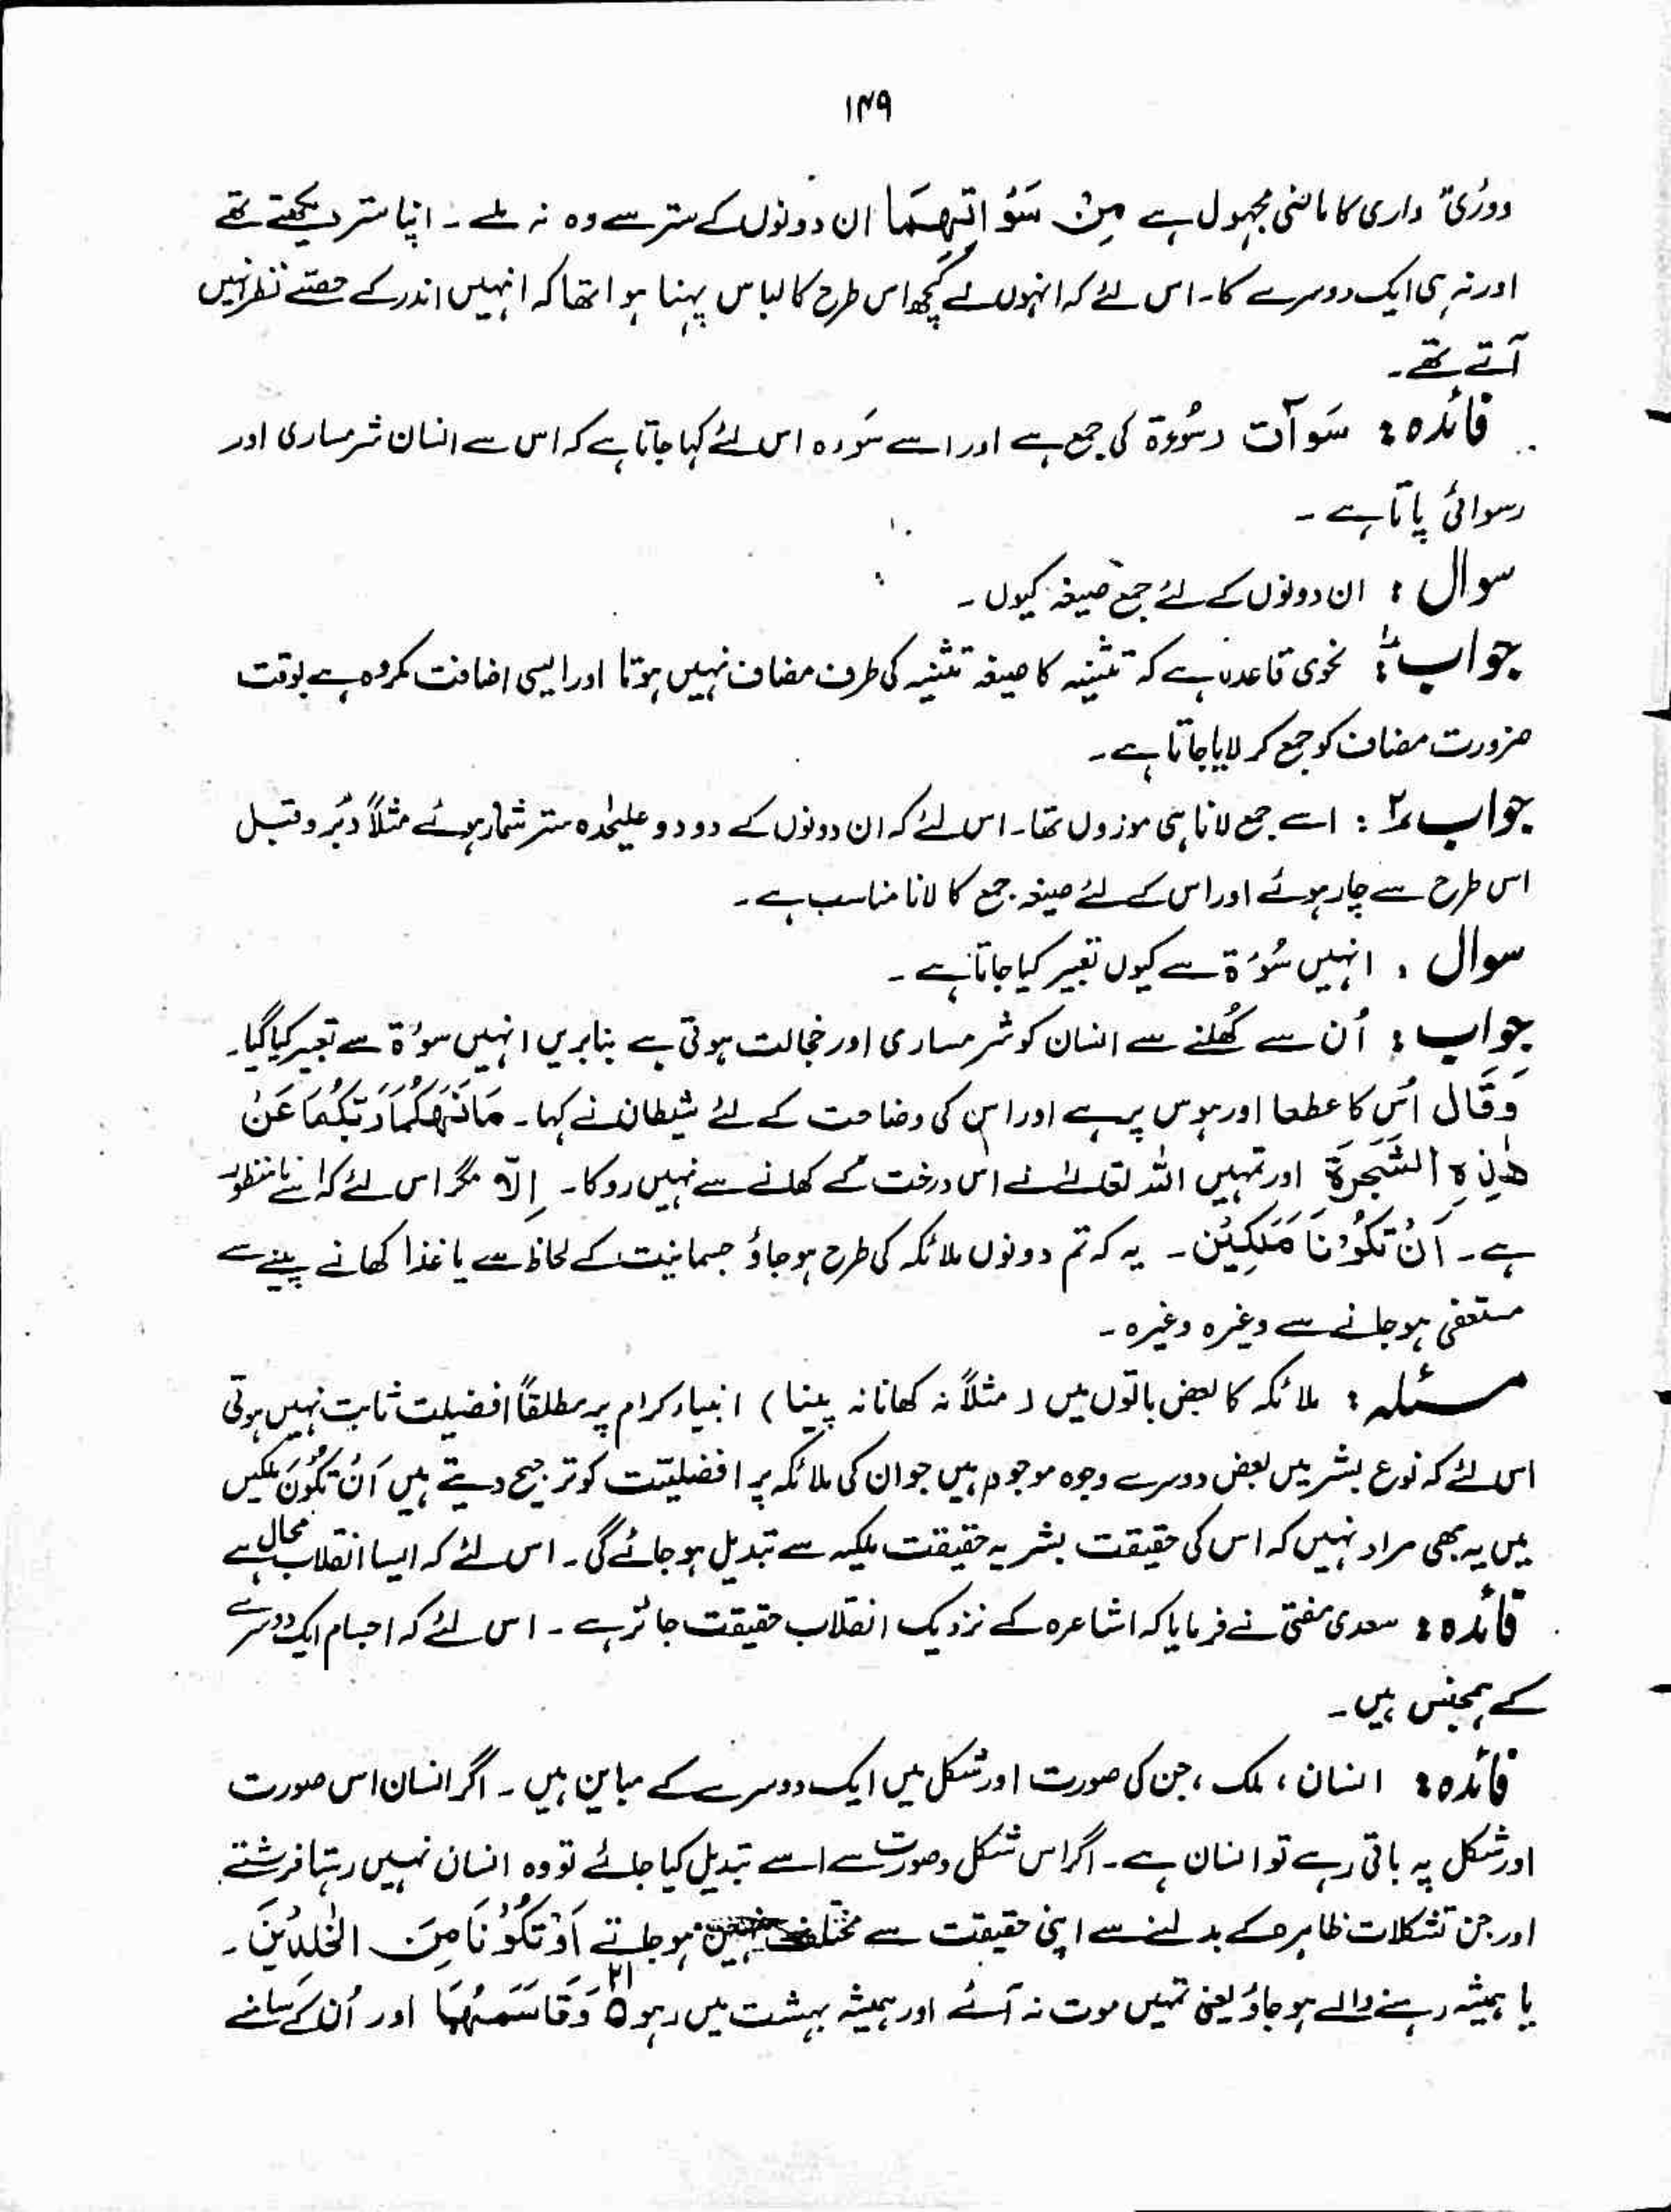 ۱۴۹
ووُرِیَ داری کا ماضی مجہول ہے مِنْ سَوْاٰتِهِمَا ان دونوں کے ستر سے وہ نہ ملے ۔ اپنا ستر دیکھتے تھے
اور نہ ہی ایک دوسرے کا۔ اس لئے کہ انہوں نے کچھ اس طرح کا لباس پہنا ہوا تھا کہ انہیں اندر کے حصّے نظر نہیں
آتے تھے۔
فائدہ : سَوآت دسُوءۃ کی جمع ہے اور اسے سَوءہ اس لئے کہا جاتا ہے کہ اس سے انسان شرمساری اور
رسوائی پاتا ہے ۔
سوال : ان دونوں کے لئے جمع صیغہ کیوں ۔
جواب ۱ : نحوی قاعدہ ہے کہ تثنیہ کا صیغہ تثنیہ کی طرف مضاف نہیں ہوتا اور ایسی اضافت مکروہ ہے بوقت
ضرورت مضاف کو جمع کر لایا جاتا ہے ۔
جواب ۲ : اسے جمع لانا ہی موزوں تھا۔ اس لئے کہ ان دونوں کے دو دو علیٰحدہ ستر شمار ہوئے مثلاً دُبر و قبل
اس طرح سے چار ہوئے اور اس کے لئے صیغہ جمع کا لانا مناسب ہے ۔
سوال : انہیں سُوْءَۃ سے کیوں تعبیر کیا جاتا ہے ۔
جواب : اُن سے کُھلنے سے انسان کو شرمساری اور خجالت ہوتی ہے بنابریں انہیں سوءۃ سے تعبیر کیا گیا۔
وَقَال اُس کا عطف اور ہوس پر ہے اور اس کی وضاحت کے لئے شیطان نے کہا ۔ مَانَهٰكُمَا رَبُّكُمَا عَنْ
هٰذِهِ الشَّجَرَةَ اور تمہیں اللہ تعالےٰ نے اس درخت کے کھانے سے نہیں روکا ۔ اِلَّا مگر اس لئے کہ اسے نا منظور
ہے ۔ اَنْ تَكُوْنَا مَلَكَيْنِ ۔ یہ کہ تم دونوں ملائکہ کی طرح ہو جاؤ جسمانیت کے لحاظ سے یا غذا کھانے پینے سے
مستغنی ہو جانے سے وغیرہ وغیرہ ۔
مسئلہ : ملائکہ کا بعض باتوں میں ( مثلاً نہ کھانا نہ پینا ) انبیاء کرام پر مطلقاً افضلیت ثابت نہیں ہوتی
اس لئے کہ نوع بشر میں بعض دوسرے وجوہ موجود ہیں جو ان کی ملائکہ پر افضلیّت کو ترجیح دیتے ہیں اَنْ تَكُوْنَ ملکیں
میں یہ بھی مراد نہیں کہ اس کی حقیقت بشریہ حقیقت ملکیہ سے تبدیل ہو جائے گی ۔ اس لئے کہ ایسا انقلاب محال ہے
فائدہ : سعدی مفتی نے فرمایا کہ اشاعرہ کے نزدیک انقلاب حقیقت جائز ہے ۔ اس لئے کہ اجسام ایک دوسرے
کے ہمجنس ہیں ۔
فائدہ : انسان ، ملک ، جن کی صورت اور شکل میں ایک دوسرے کے مباین ہیں ۔ اگر انسان اس صورت
اور شکل پہ باقی رہے تو انسان ہے ۔ اگر اس شکل وصورت سے اسے تبدیل کیا جائے تو وہ انسان نہیں رہتا فرشتے
اور جن تشکلات ظاہرہ کے بدلنے سے اپنی حقیقت سے مختلف نہیں ہو جاتے اَوْتَكُوْنَا مِنَ الْخٰلِدِيْنَ ۔
یا ہمیشہ رہنے والے ہو جاؤ یعنی تمہیں موت نہ آئے اور ہمیشہ بہشت میں رہو ۲۱ ۵ وَقَاسَمَهُمَا اور اُن کے سامنے